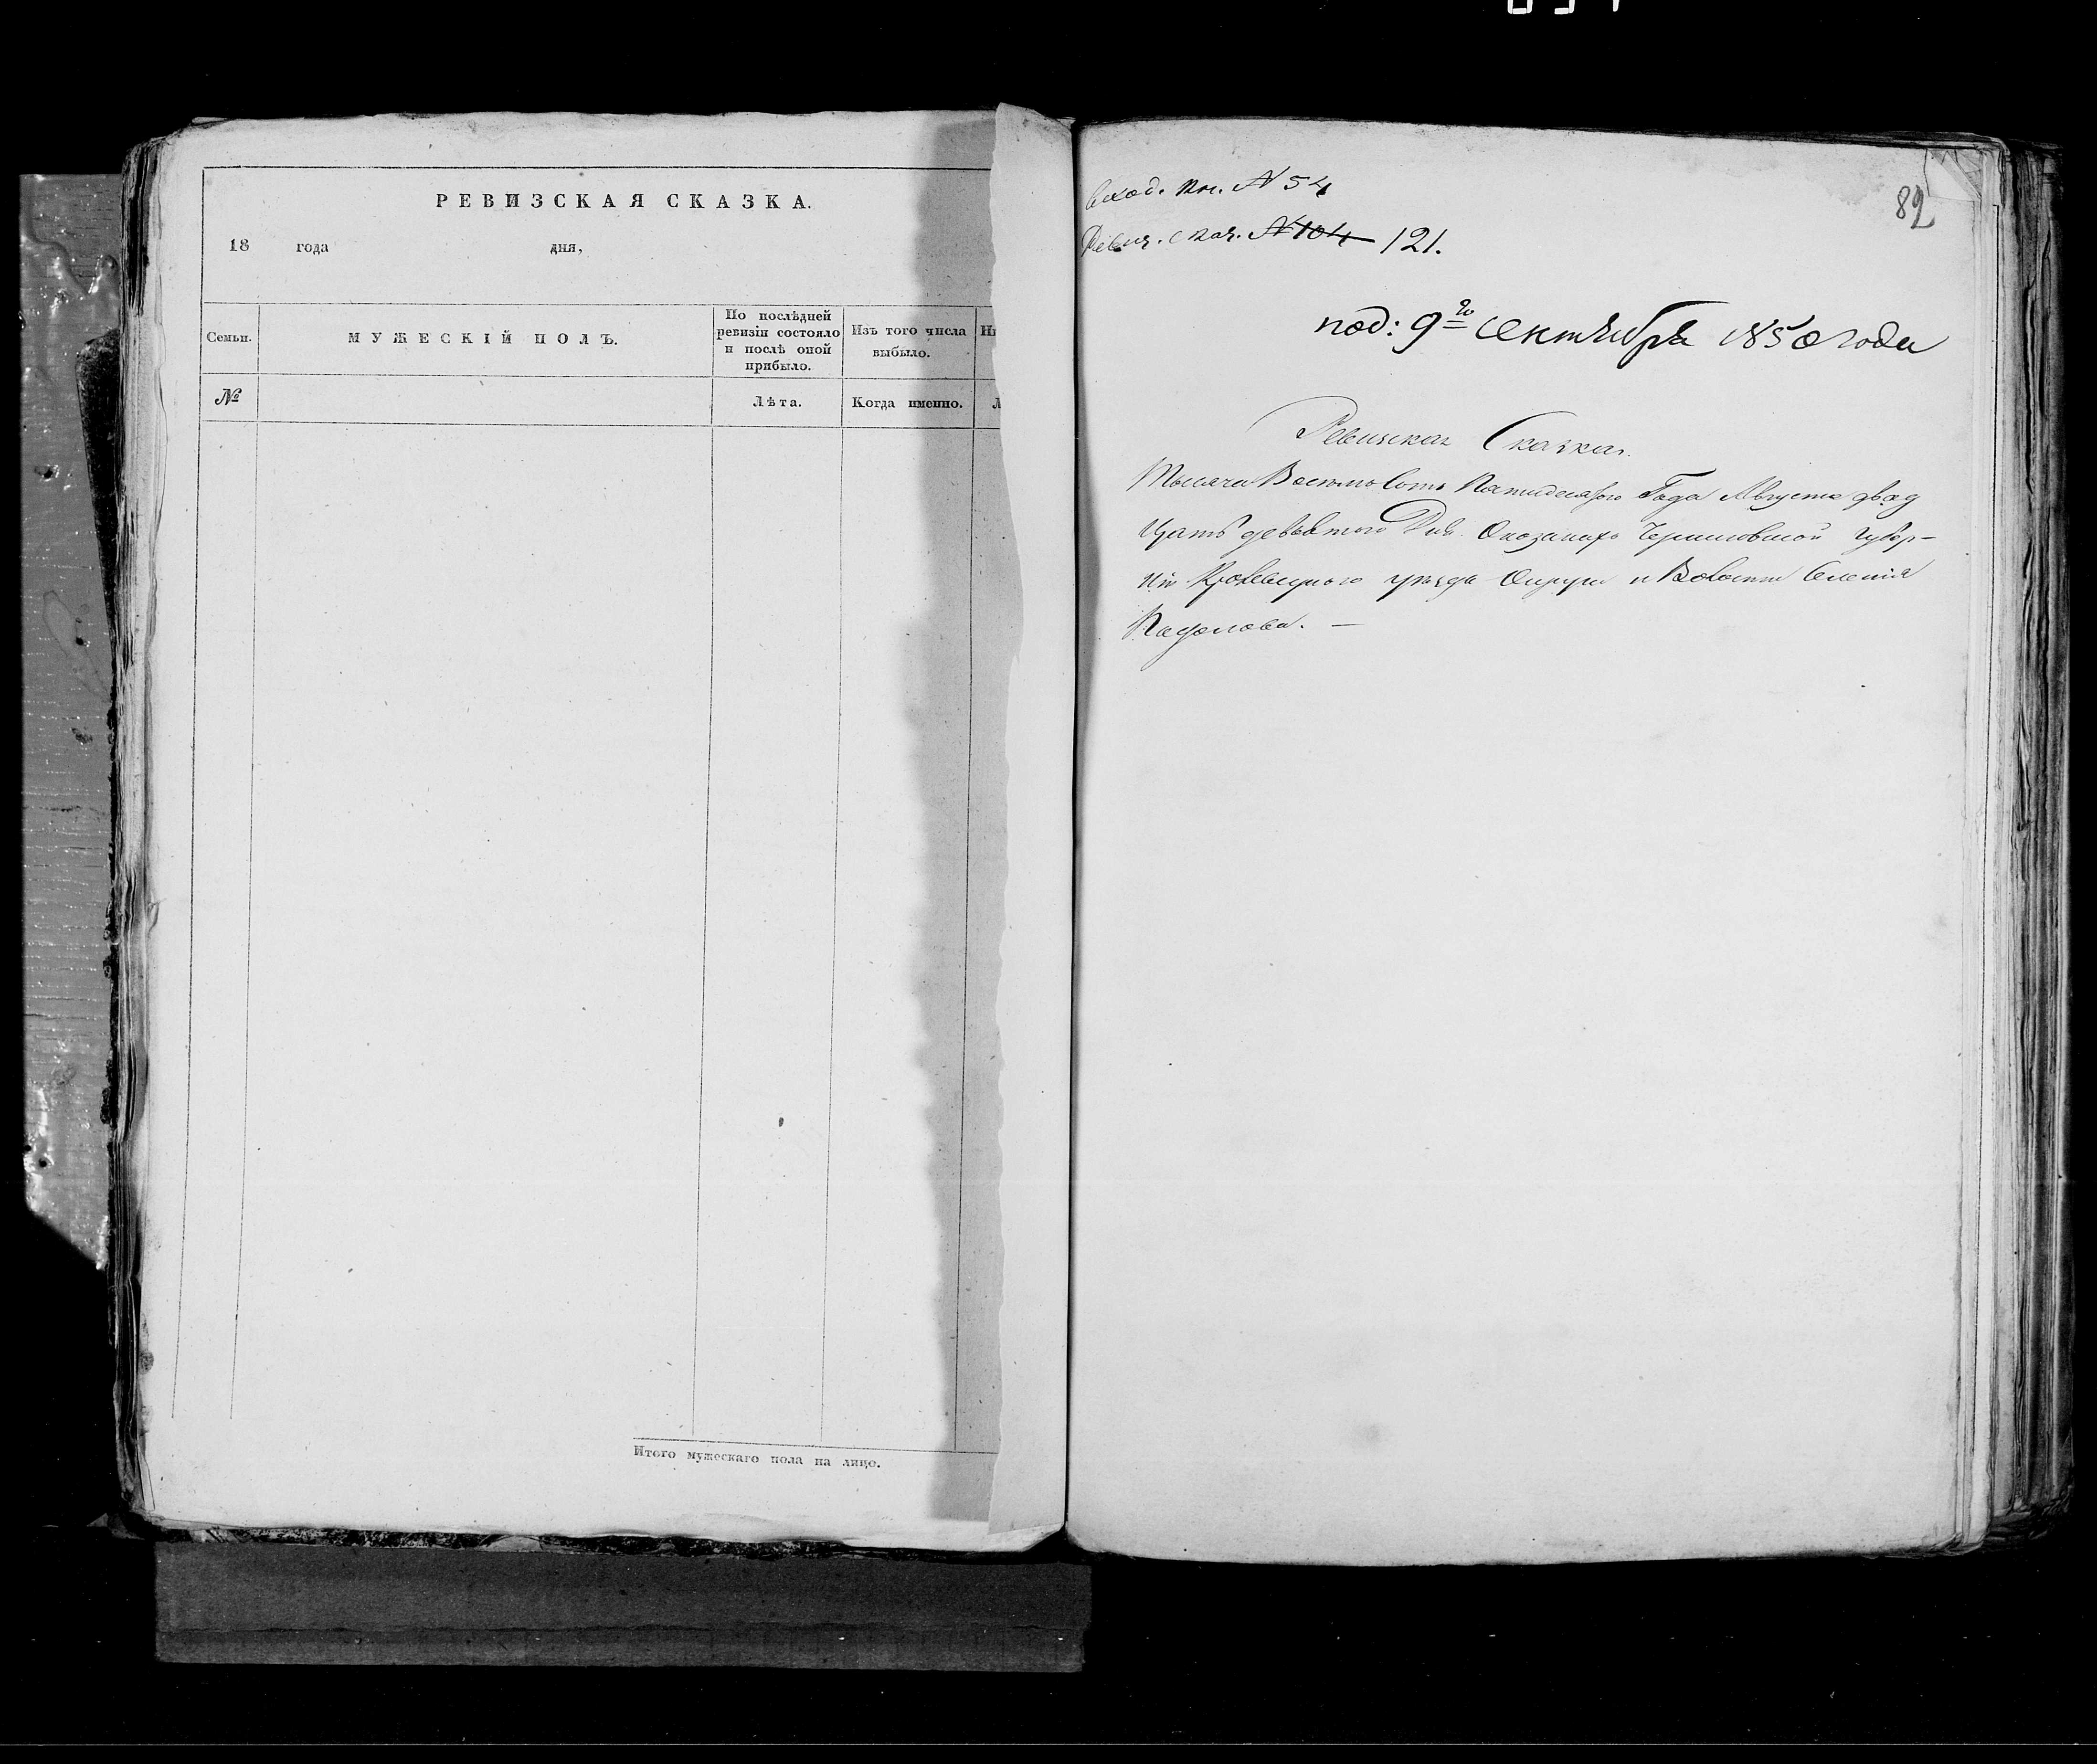 РЕВИЗСКАЯ СКАЗКА.
18 года дня,
Семьи.
МУЖЕСКІЙ ПОЛЪ.
По послѣдней
ревизіи состояло
и послѣ оной
прибыло.
Изъ того числа
выбыло.
№
Лѣта.
Когда именно.
Итого мужескаго пола на лицо.
82
вход. кн. № 54
Ревиз. сказ. №104 121.
под: 9го Сентября 1850 года
Ревизская Сказка.
Тысяча Восемьсотъ Пятидесятого Года Августа двад
цать девятого Дня. Черниговской Губер-
ніи Кролевецкого уѣзда Округи и Волости Селенія